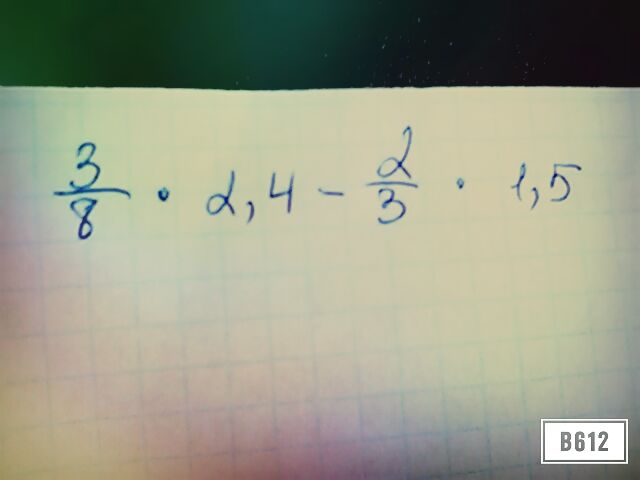 3/8 · 2,4 - 2/3 · 1,5
B612